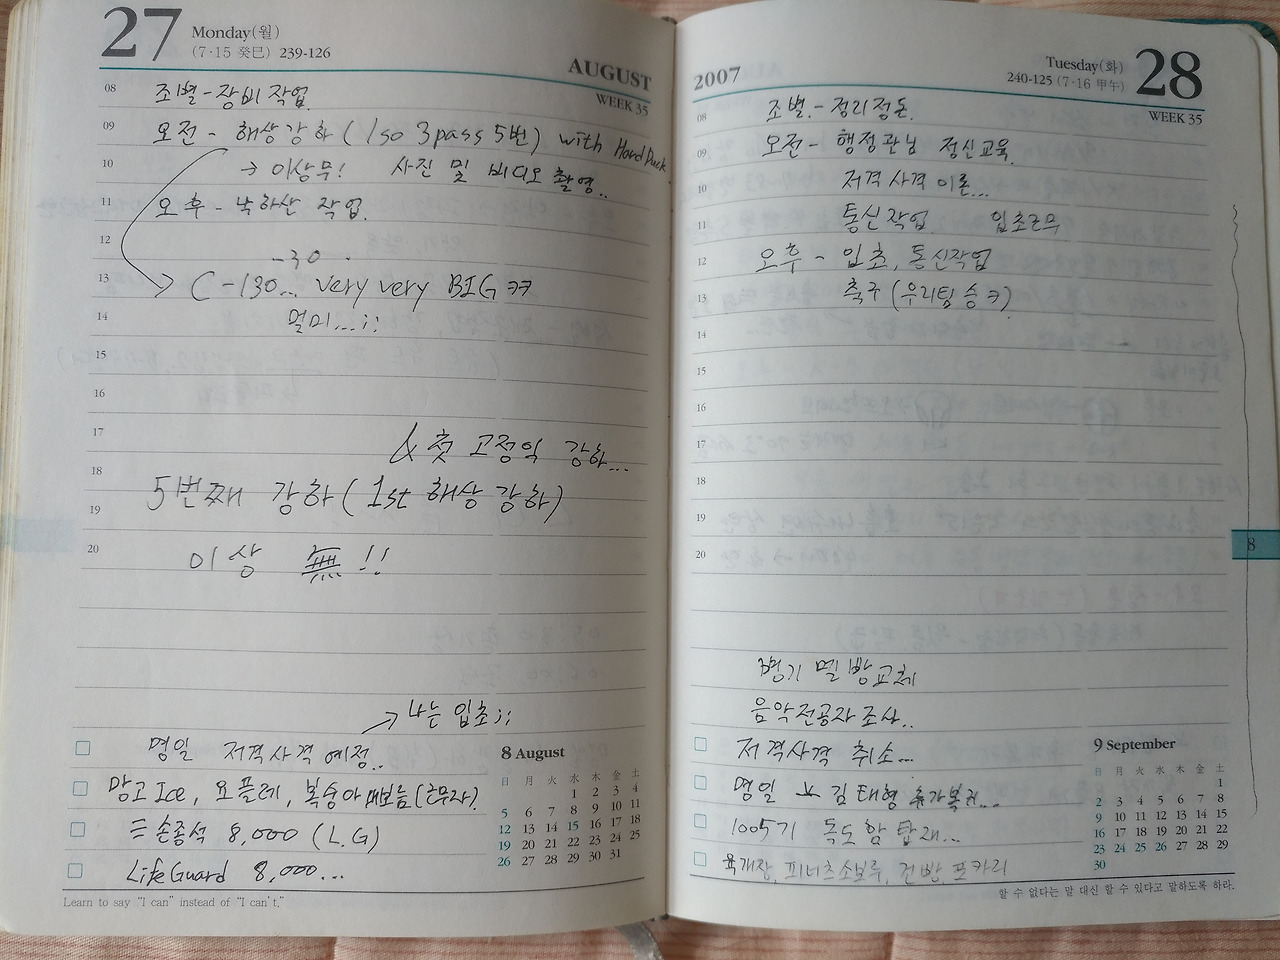 27 Monday(월)
(7·15 癸巳) 239-126
AUGUST
WEEK 35
08 조별-장비 작업.
09 오전 - 해상강하 (1so 3pass 5번) with Hard Duck
10 → 이상무! 사진 및 비디오 촬영..
11 오후 - 낙하산 작업.
12
-30
13 C-130... very very BIG ㅋㅋ
14 멀미...;;
15
16
17 & 첫 고정익 강하...
18
5번째 강하 (1st 해상 강하)
19
20 이상 無!!
→ 나는 입초;;
명일 저격사격 예정..
망고 Ice, 요플레, 복숭아 (근무자).
= 손종석 8,000 (L.G)
Life Guard 8,000...
8 August
日 月 火 水 木 金 土
1 2 3 4
5 6 7 8 9 10 11
12 13 14 15 16 17 18
19 20 21 22 23 24 25
26 27 28 29 30 31
Learn to say "I can" instead of "I can't."
2007
Tuesday(화)
240-125 (7·16 甲午)
28
WEEK 35
08 조별 - 정리정돈.
09 오전 - 행정관님 정신교육.
10 저격 사격 이론...
11 통신작업 입초근무
12 오후 - 입초, 통신작업
13 축구 (우리팀 승 ㅋ)
14
15
16
17
18
19
20
8
멜빵교체
음악전공자 조사..
저격사격 취소...
명일 김태형 휴가복귀...
1005기 독도함 탑재...
육개장, 피너츠소보루, 건빵, 포카리
9 September
日 月 火 水 木 金 土
1
2 3 4 5 6 7 8
9 10 11 12 13 14 15
16 17 18 19 20 21 22
23 24 25 26 27 28 29
30
할 수 없다는 말 대신 할 수 있다고 말하도록 하라.